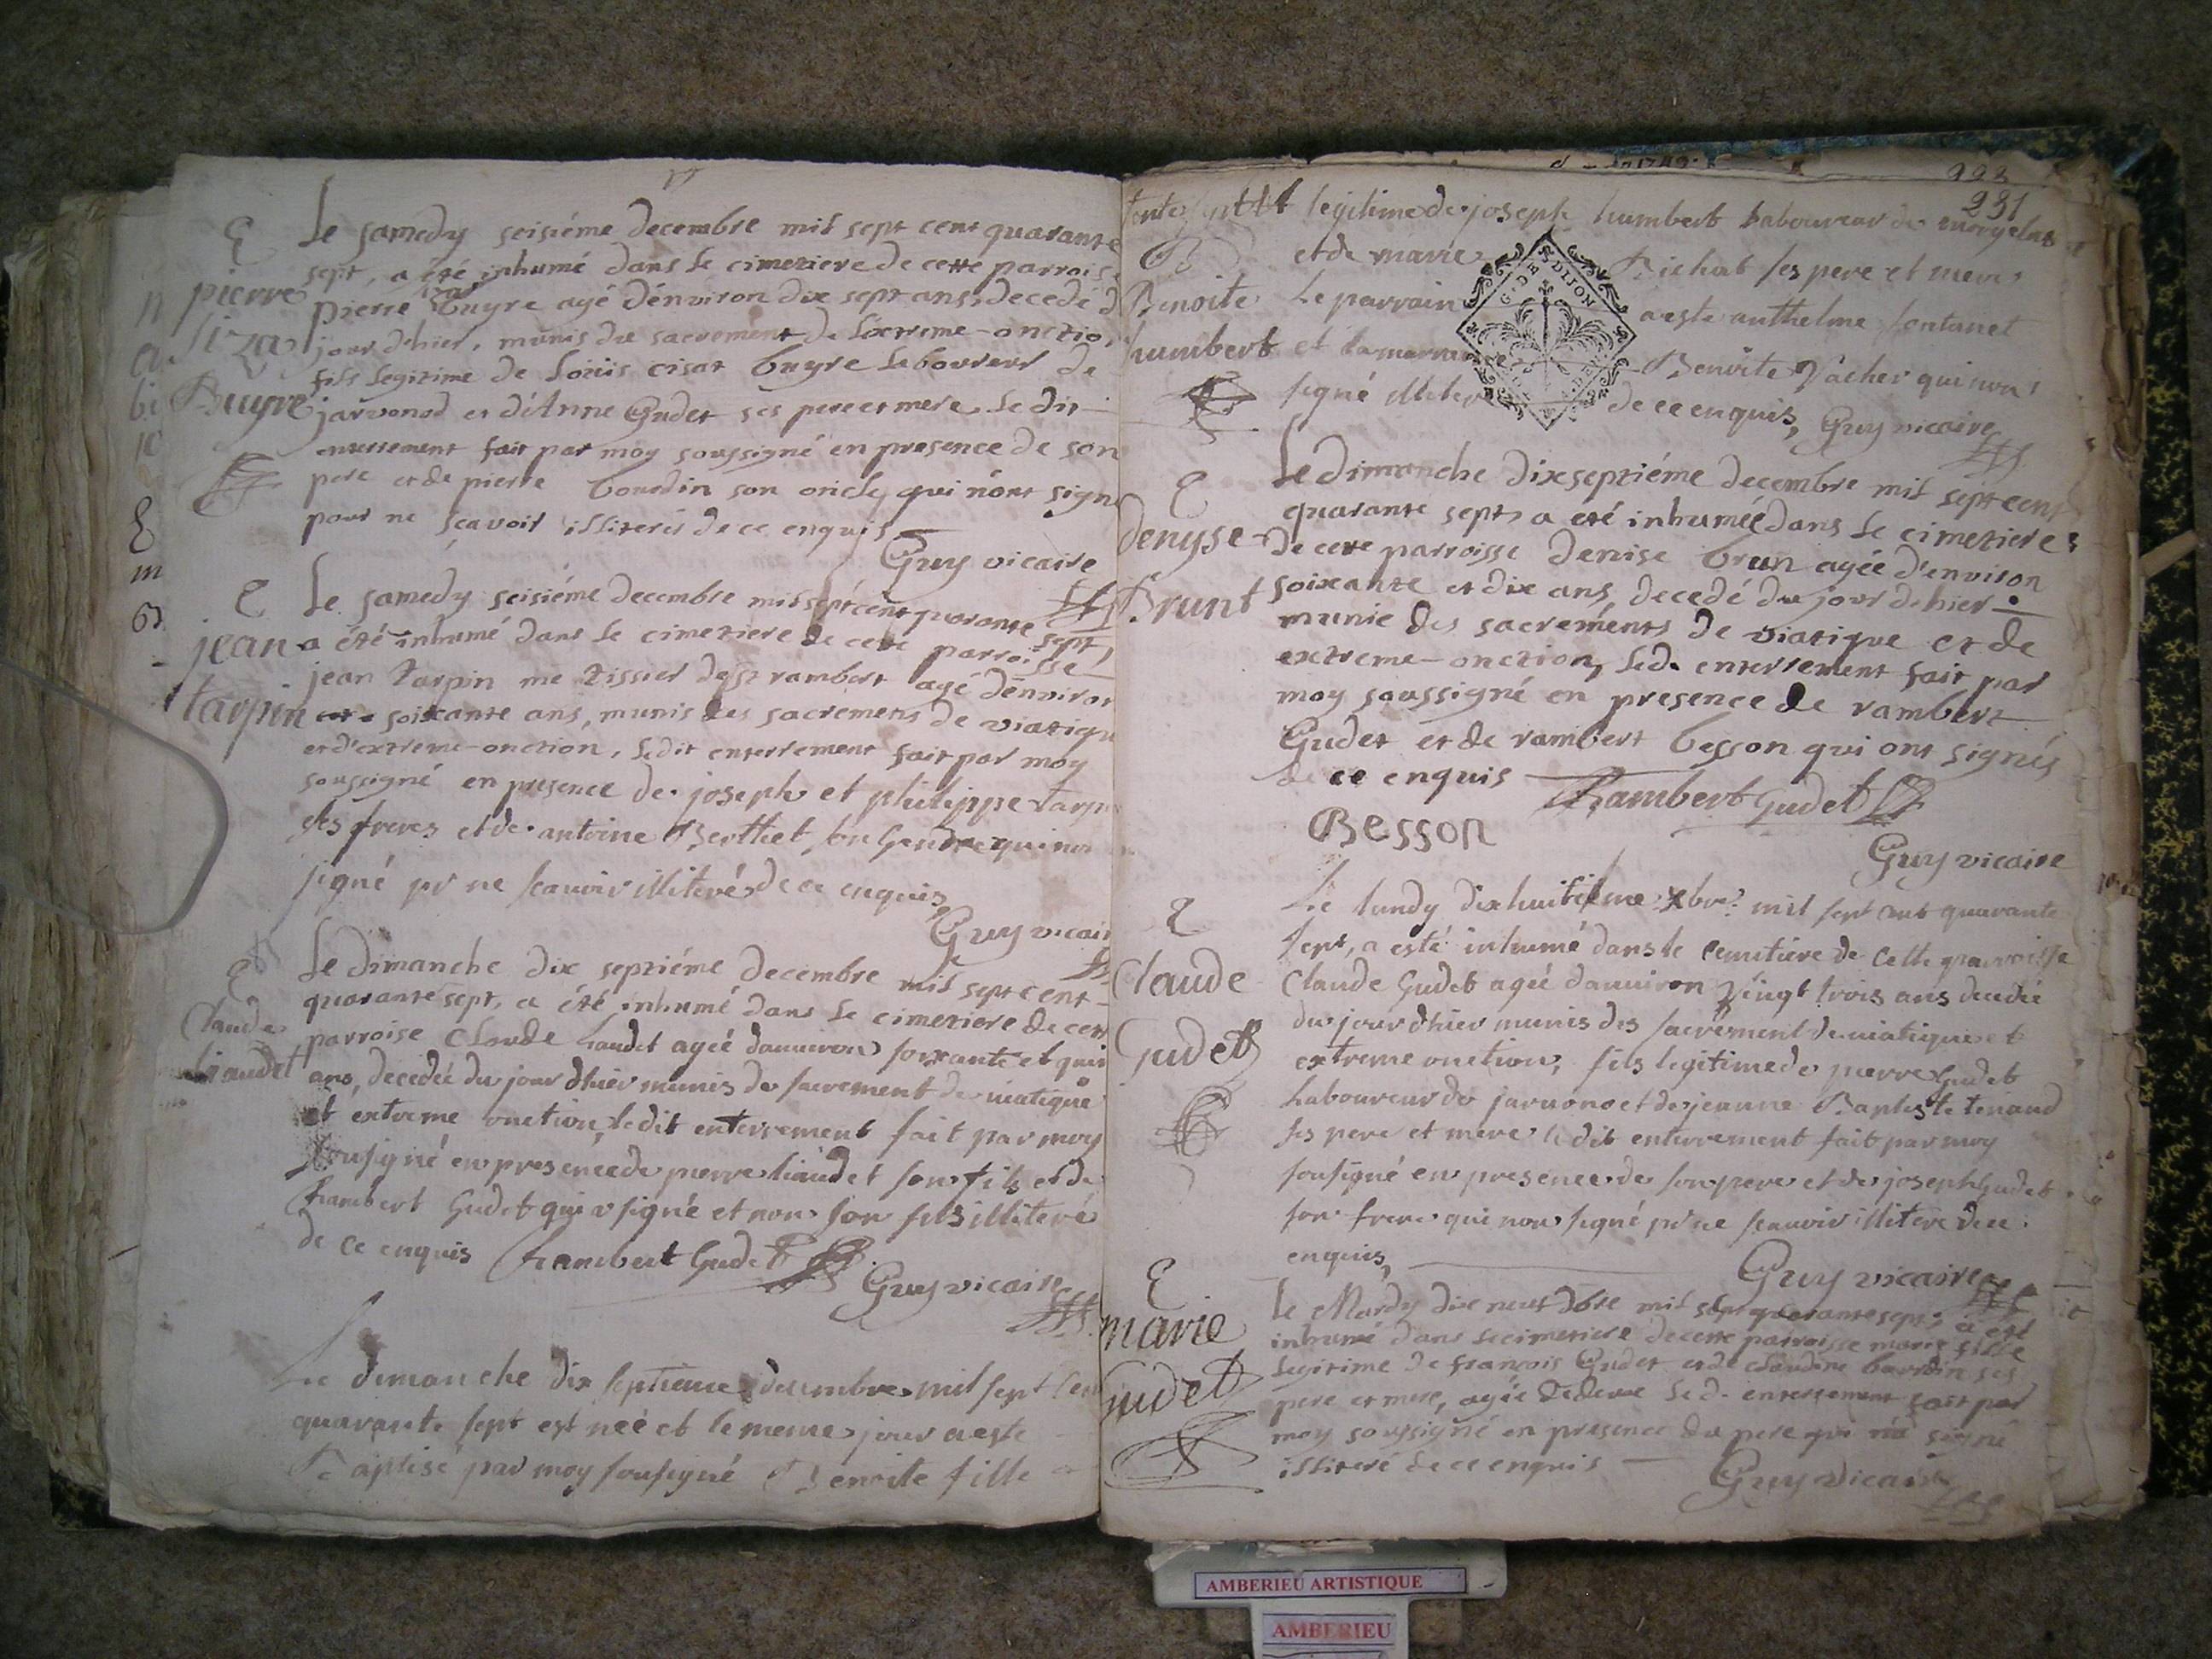 E
pierre
siza
Buyre
Le samedy seisiéme decembre mil sept cent quarante
sept, a été inhumé dans le cimetiere de cette parrois
pierre Buyre agé d'énviron dix sept ans, decedé d
jour dhier, munis du sacrement de l'extreme-onctio
fils legitime de Loüis cisat buyre laboureur de
jarvonod et d'Anne Gudet ses pere et mere. Le dit
enterrement fait par moy soussigné en presence de son
pere et de pierre bourdin son oncle, qui n'ont signé
pour ne sçavoir illiterés de ce enquis
Guy vicaire
E
jean
tarpin
Le samedy seisiéme decembre mil sept cent quarante sept,
a été inhumé dans le cimetiere de cette parroisse
jean tarpin me tissier de st rambert agé d'énviron
soixante ans, munis des sacremens de viatique
et d'extreme-onction, ledit enterrement fait par moy
soussigné en presence de joseph et philippe tarpin
ses freres et de antoine Berthet son gendre qui non
signé pr ne scauoir illiteré de ce enquis
Guy vicair
E
Claude
liaudet
Le dimanche dix septiéme decembre mil sept cent
quarante sept, a été inhumé dans le cimetiere de cett
parroise Claude liaudet ageé danuiron soixante et quin
ans, decedeé du jour dhier munis du sacrement de uiatique
et éxtreme onction, ledit enterrement fait par moy
sousigné en presence de pierre liaudet son fils et de
Rambert Gudet qui a signé et non son fils illiteré
de ce enquis Rambert Gudet
Guy vicaire
Le dimanche dix septieme decembre mil sept cen
quarante sept est neé et le meme jour a esté
Baptisé par moy sousigné Benoite fille
231
B
Benoite
humbert
legitime de joseph humbert laboureur de
et de marie Bichat ses pere et mere
Le parrain a esté anthelme fontanet
et la marraine Benoite Vacher qui non
signé illiter de ce enquis, Guy vicaire
G. DE DIJON
E
denyse
Brunt
Le dimanche dixseptiéme decembre mil sept cent
quarante sept, a eté inhumée dans le cimetiere
de cette parroisse denise brun agée d'environ
soixante et dix ans, decedé du jour d'hier
munie des sacreménts de viatique et de
extreme-onction, led. enterrement fait par
moy soussigné en presence de rambert
Gudet et de rambert besson qui ont signés
de ce enquis Rambert Gudet
Besson
Guy vicaire
E
Claude
Gudet
Le lundy dixhuitiéme xbre mil sept cent quarante
sept, a esté inhumé dans le cemitiere de cette parroisse
Claude Gudet ageé danuiron Vingt trois ans decedeé
du jour dhier munis des sacrement de uiatique et
extreme onction, fils legitime de pierre Gudet
laboureur de jaruonod et de jeanne Baptiste tenaud
ses pere et mere le dit enterrement fait par moy
sousigné en presence de son pere et de joseph Gudet
son frere qui non signé pr ne scauoir illiteré de ce
enquis,
Guy vicaire
E
marie
Gudet
Le Mardy dix neuf xbre mil sept quarante sept, a été
inhumé dans le cimetiere de cette parroisse marie fille
legitime de françois Gudet et de claudine bourdin ses
pere et mere, agée led. enterrement fait par
moy soussigné en presence du pere qui n'a signé
illiteré de ce enquis
Guy vicaire
AMBERIEU ARTISTIQUE
AMBERIEU